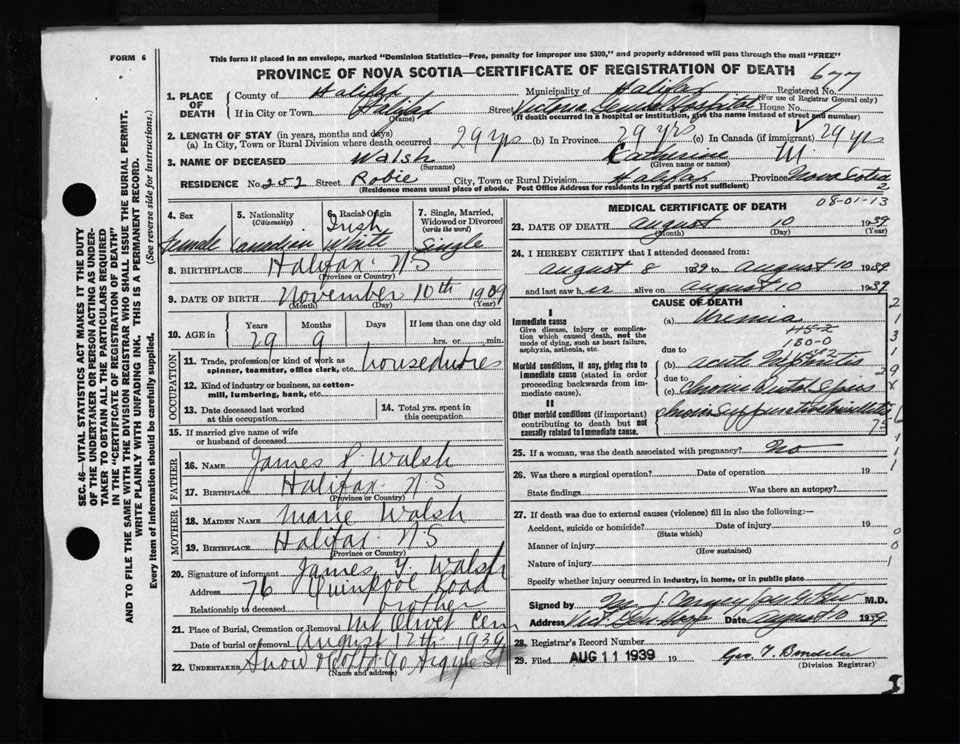 FORM 6
This form if placed in an envelope, marked "Dominion Statistics—Free, penalty for improper use $300," and properly addressed will pass through the mail "FREE"
PROVINCE OF NOVA SCOTIA—CERTIFICATE OF REGISTRATION OF DEATH
677
SEC. 46—VITAL STATISTICS ACT MAKES IT THE DUTY
OF THE UNDERTAKER OR PERSON ACTING AS UNDER-
TAKER TO OBTAIN ALL THE PARTICULARS REQUIRED
IN THE "CERTIFICATE OF REGISTRATION OF DEATH"
AND TO FILE THE SAME WITH THE DIVISION REGISTRAR WHO SHALL ISSUE THE BURIAL PERMIT.
WRITE PLAINLY WITH UNFADING INK. THIS IS A PERMANENT RECORD.
Every item of information should be carefully supplied. (See reverse side for instructions.)
1. PLACE OF DEATH County of Halifax Municipality of Halifax Registered No.
(For use of Registrar General only)
If in City or Town Halifax (Name) Street Victoria General Hospital House No.
(If death occurred in a hospital or institution, give the name instead of street and number)
2. LENGTH OF STAY (in years, months and days)
(a) In City, Town or Rural Division where death occurred 29 yrs (b) In Province 29 yrs (c) In Canada (if immigrant) 29 yrs
3. NAME OF DECEASED Walsh (Surname) Katherine M. (Given name or names)
RESIDENCE No. 252 Street Robie City, Town or Rural Division Halifax Province Nova Scotia
(Residence means usual place of abode. Post Office Address for residents in rural parts not sufficient)
2
08-01-13
4. Sex Female
5. Nationality (Citizenship) Canadian
6. Racial Origin Irish White
7. Single, Married, Widowed or Divorced (write the word) Single
8. BIRTHPLACE Halifax N S
(Province or Country)
9. DATE OF BIRTH November 10th 1909
(Month) (Day) (Year)
10. AGE in Years 29 Months 9 Days If less than one day old hrs. or min.
OCCUPATION
11. Trade, profession or kind of work as spinner, teamster, office clerk, etc. houseduties
12. Kind of industry or business, as cotton-mill, lumbering, bank, etc.
13. Date deceased last worked at this occupation
14. Total yrs. spent in this occupation
15. If married give name of wife or husband of deceased
FATHER
16. NAME James P. Walsh
17. BIRTHPLACE Halifax N S
(Province or Country)
MOTHER
18. MAIDEN NAME Marie Walsh
19. BIRTHPLACE Halifax N S
(Province or Country)
20. Signature of informant James Y. Walsh
Address 76 Quinpool Road
Relationship to deceased brother
21. Place of Burial, Cremation or Removal Mt Olivet Cem
Date of burial or removal August 12th 1939
22. UNDERTAKER Snow & Co Ltd 90 Argyle St
(Name and address)
MEDICAL CERTIFICATE OF DEATH
23. DATE OF DEATH August 10 1939
(Month) (Day) (Year)
24. I HEREBY CERTIFY that I attended deceased from:
August 8 1939 to August 10 1939
and last saw her alive on August 10 1939
CAUSE OF DEATH
I
Immediate cause
Give disease, injury or complication which caused death, not the mode of dying, such as heart failure, asphyxia, asthenia, etc.
(a) Uremia
130-0
due to
Morbid conditions, if any, giving rise to immediate cause (stated in order proceeding backwards from immediate cause).
(b) acute Nephritis
due to
(c) Chronic Dental Sepsis
II
Other morbid conditions (if important) contributing to death but not causally related to immediate cause.
25. If a woman, was the death associated with pregnancy? No
26. Was there a surgical operation? Date of operation 19
State findings Was there an autopsy?
27. If death was due to external causes (violence) fill in also the following:—
Accident, suicide or homicide? Date of injury 19
(State which)
Manner of injury
(How sustained)
Nature of injury
Specify whether injury occurred in industry, in home, or in public place
Signed by M.D.
Address Vict Gen Hosp Date August 10 1939
28. Registrar's Record Number
29. Filed AUG 11 1939 19
(Division Registrar)